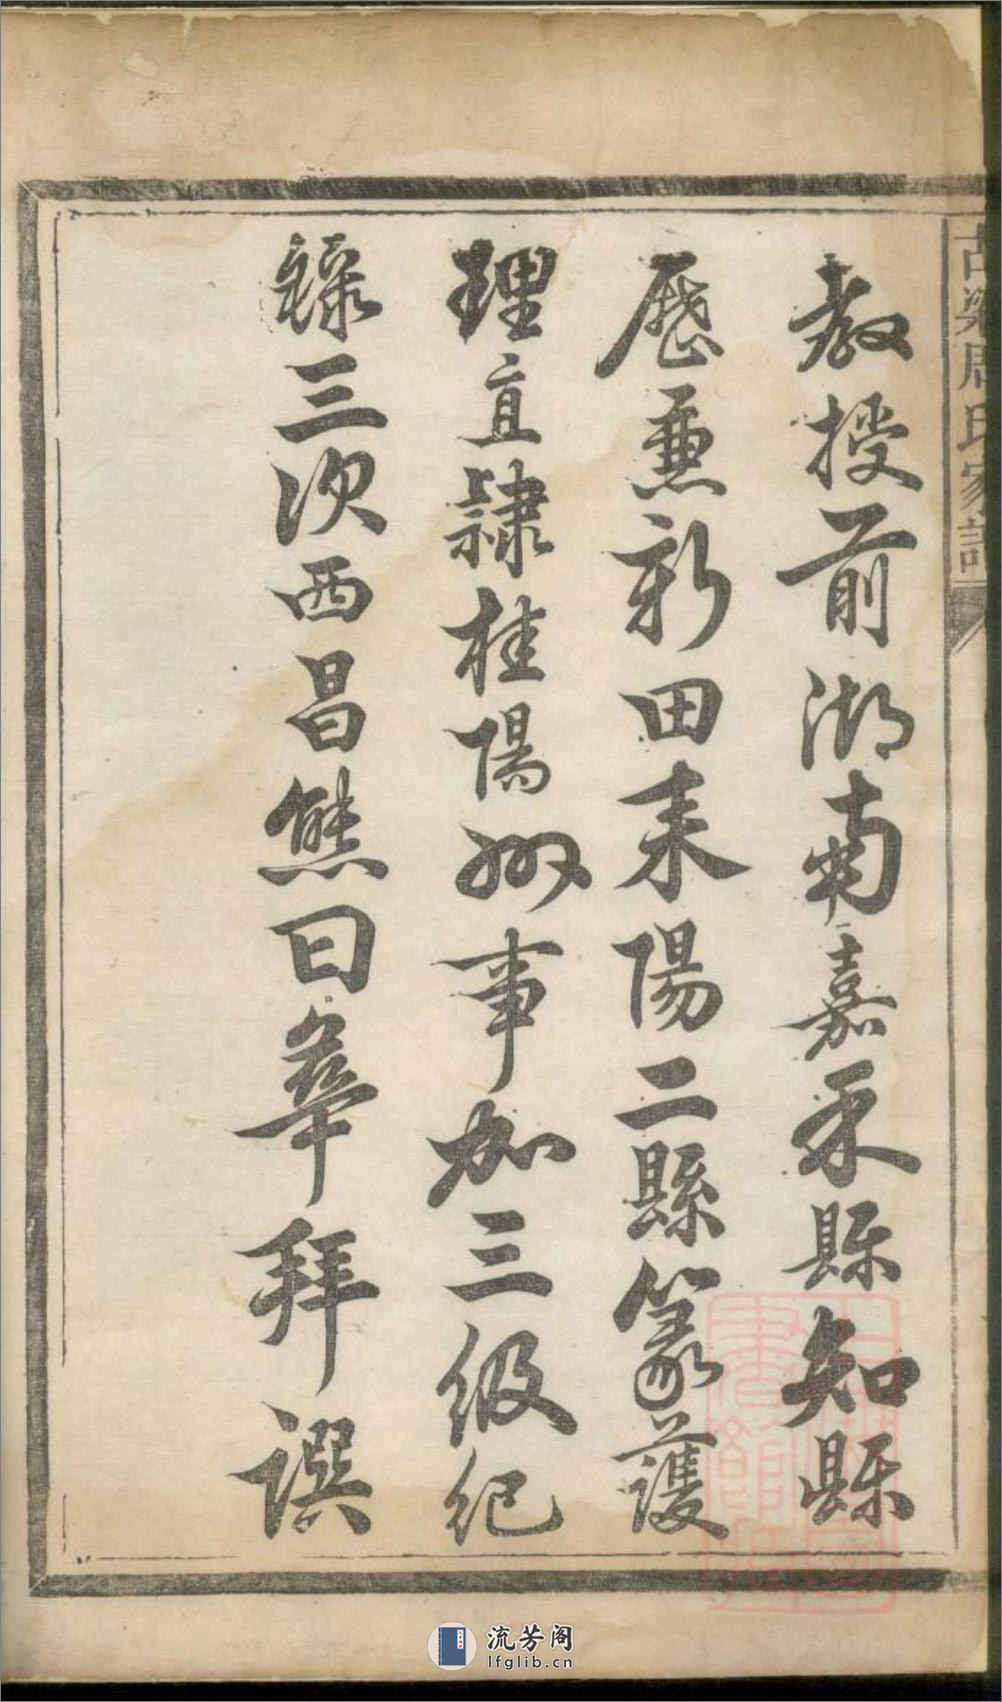 古梁周氏家譜
教授前湖南嘉禾縣知縣
歷兼新田耒陽二縣篆護
理直隸桂陽州事加三級紀
錄三次西昌熊曰華拜譔
流芳阁
lfglib.cn